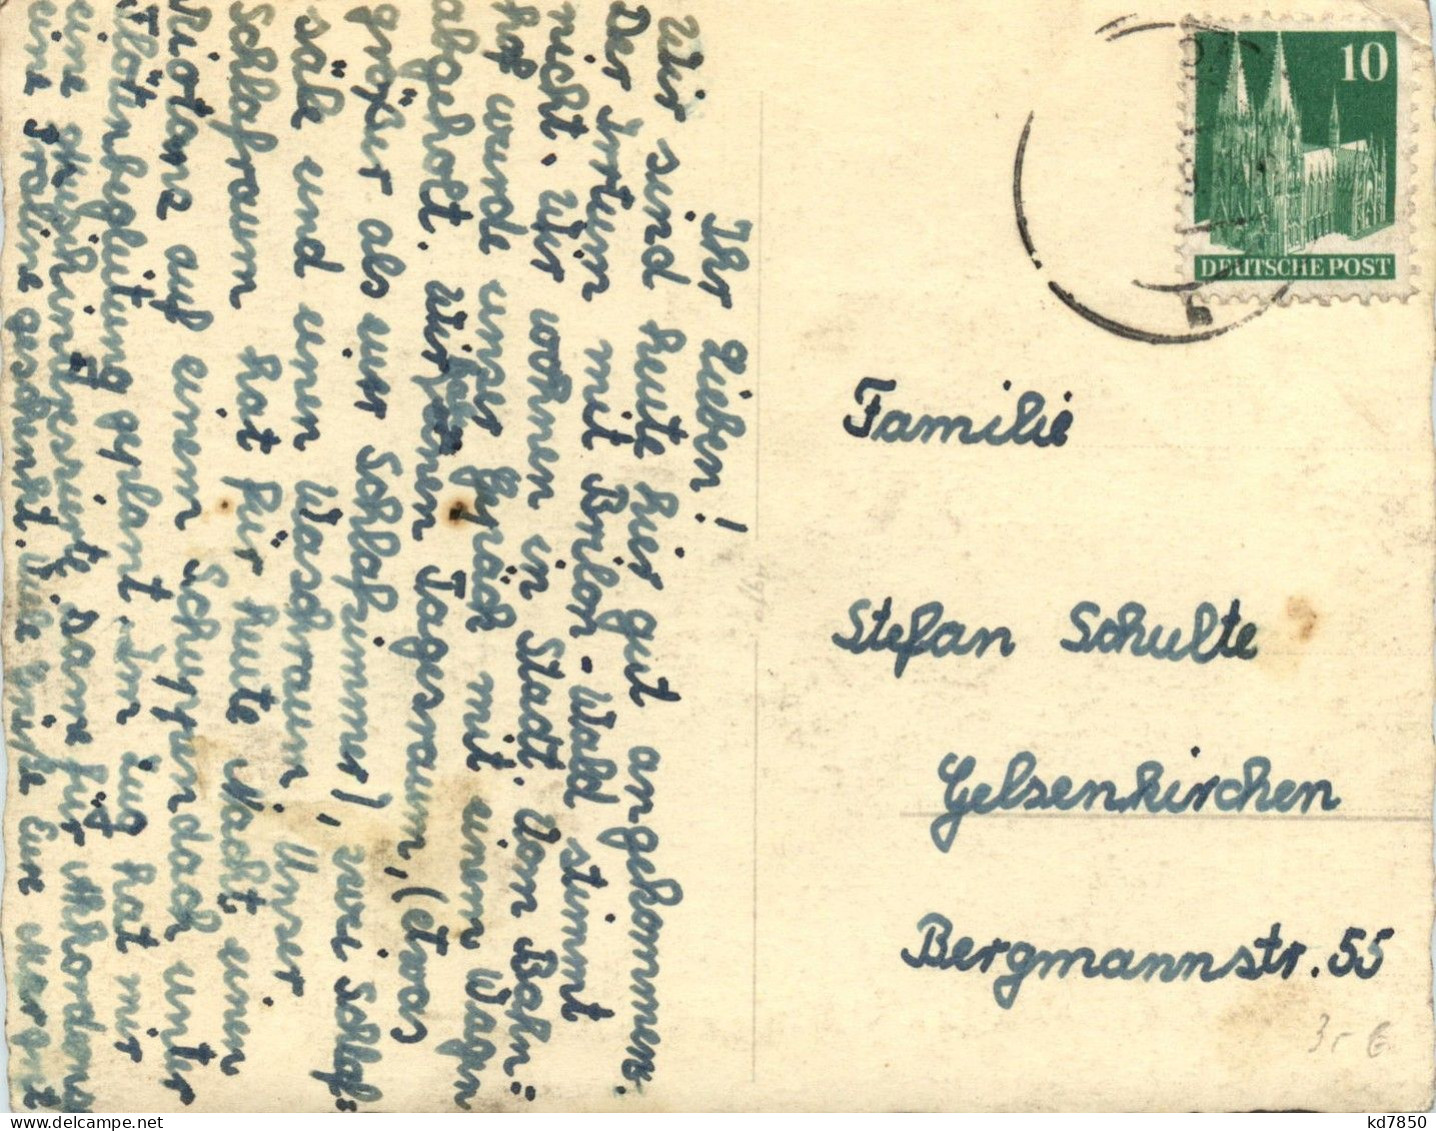 Ihr Lieben!
Wir sind heute hier gut angekommen.
Der Irrtum mit Brilon-Wald stimmt
nicht. Wir wohnen in Stadt. Vom Bahn-
hof wurde unser Gepäck mit einem Wagen
abgeholt. Wir haben einen Tagesraum, (etwas
größer als euer Schlafzimmer), zwei Schlaf-
säle und einen Waschraum. Unser
Schlafraum hat für heute Nacht einen
auf einem Schuppendach unter
Flötenbegleitung geplant. Im Zug hat mir
eine Dame für
eine Praline geschenkt. Viele Grüße Euer
10
DEUTSCHE POST
Familie
Stefan Schulte
Gelsenkirchen
Bergmannstr. 55
3,- €
kd7850